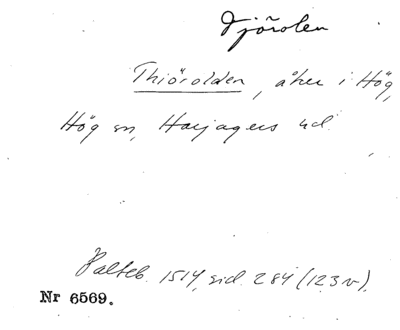 Djörolen
Thiörolden, åker i Hög,
Hög sn, Harjagers hd.
Palteb. 1514, sid 284 (123 v).
Nr 6569.